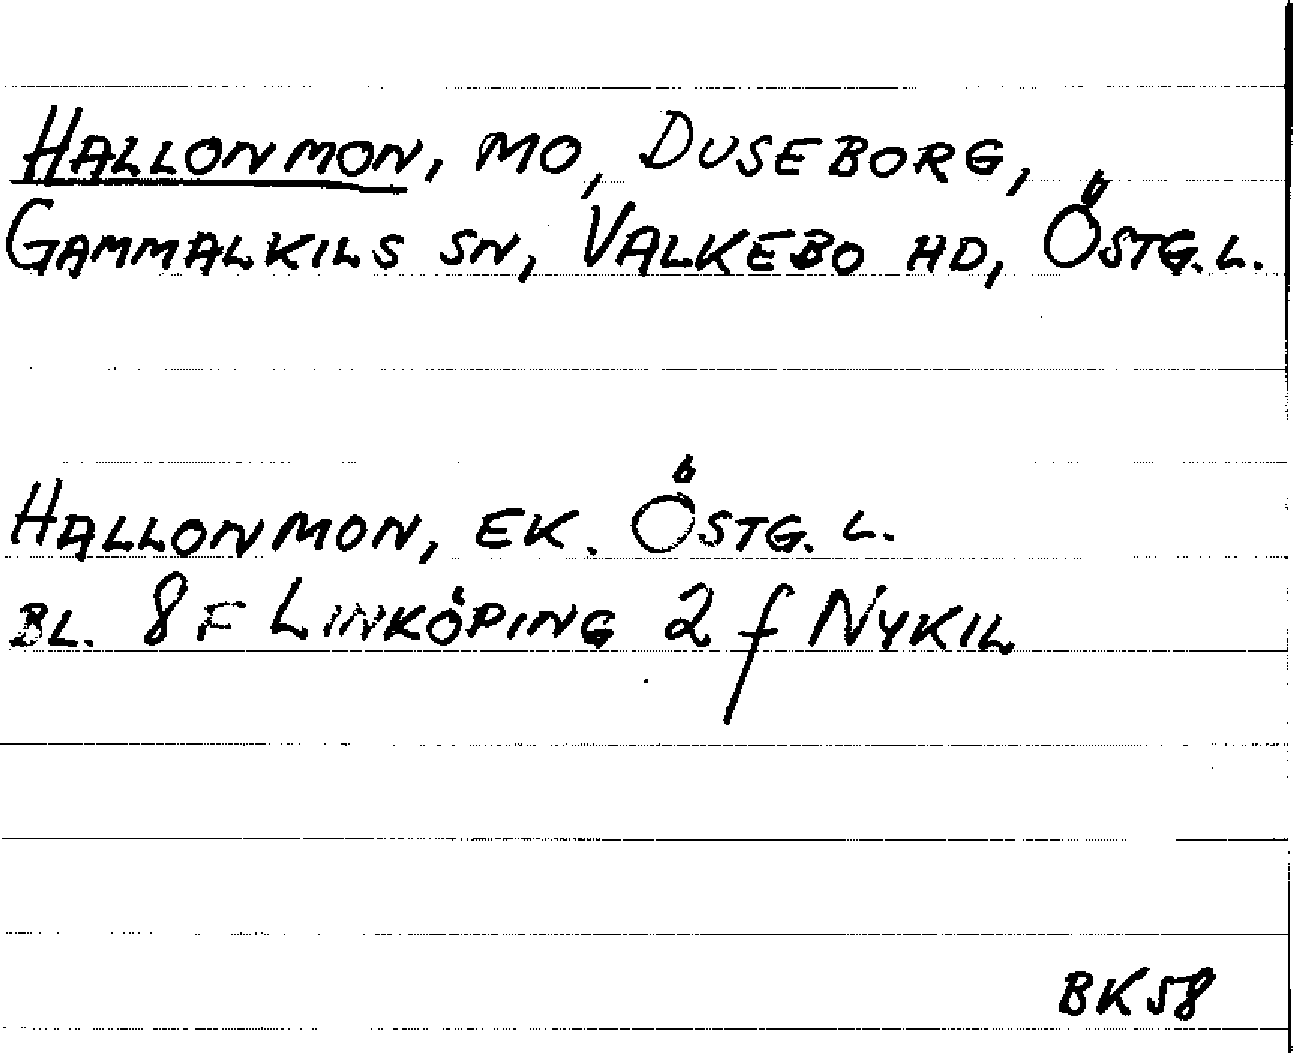 HALLONMON, MO, DUSEBORG,
GAMMALKILS SN, VALKEBO HD, ÖSTG. L.
HALLONMON, EK. ÖSTG. L.
BL. 8F LINKÖPING 2 f NYKIL
BK58